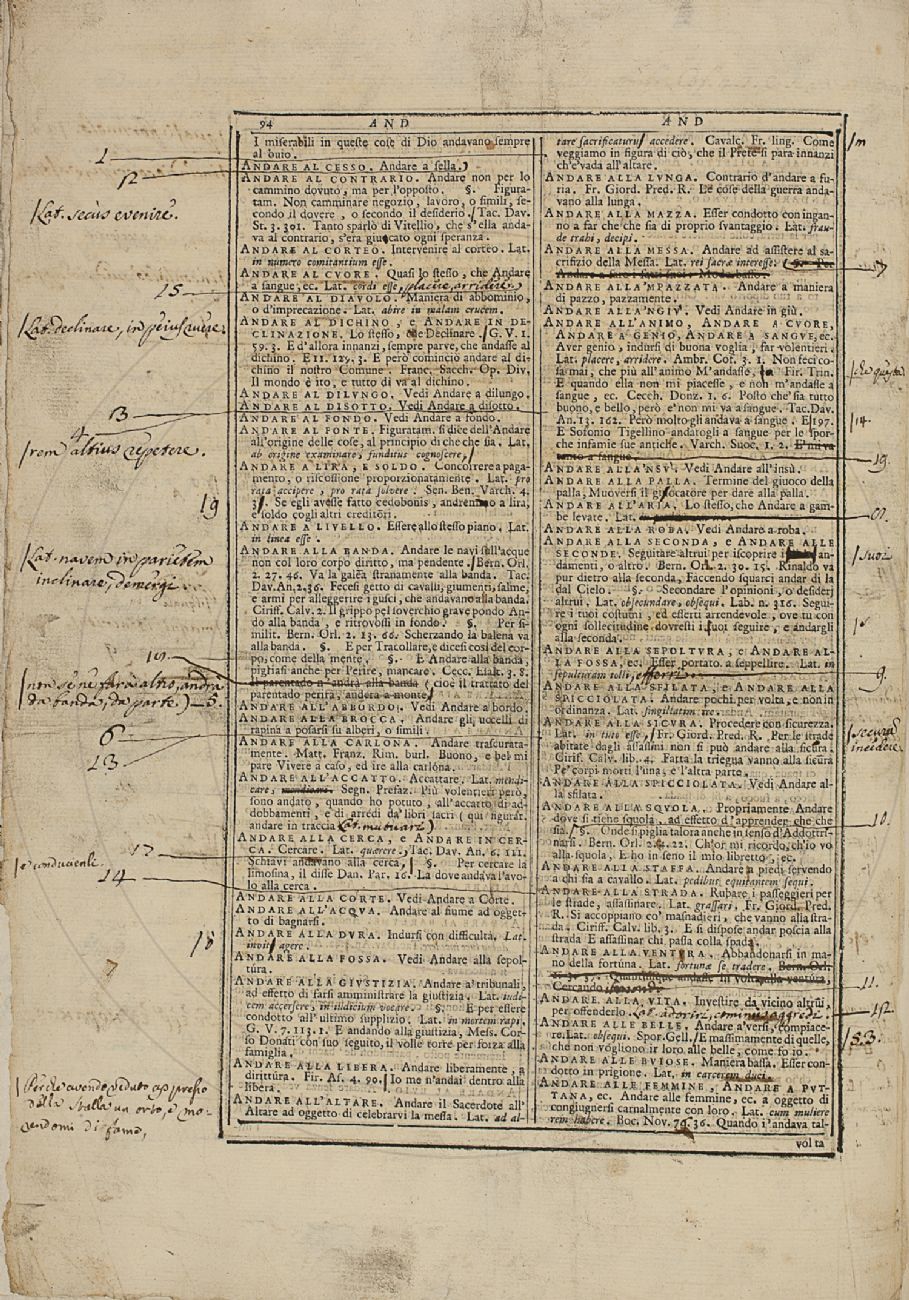 94 AND AND
I miserabili in queste cose di Dio andavano sempre
al buio.
ANDARE AL CESSO. Andare a sella.)
ANDARE AL CONTRARIO. Andare non per lo
cammino dovuto, ma per l'opposto. §. Figura-
tam. Non camminare negozio, lavoro, o simili, se-
condo il dovere, o secondo il desiderio. Tac. Dav.
St. 3. 301. Tanto sparlò di Vitellio, che s'ella anda-
va al contrario, s'era giuocato ogni speranza.
ANDARE AL CORTEO. Intervenire al corteo. Lat.
in numero comitantium esse.
ANDARE AL CVORE. Quasi lo stesso, che Andare
a sangue, ec. Lat. cordi esse, placere, arridere.
ANDARE AL DIAVOLO. Maniera di abbominio,
o d'imprecazione. Lat. abire in malam crucem.
ANDARE AL DICHINO, e ANDARE IN DE-
CLINAZIONE. Lo stesso, che Declinare. G. V. 1.
59. 3. E d'allora innanzi, sempre parve, che andasse al
dichino. E 11. 129. 3. E però cominciò andare al di-
chino il nostro Comune. Franc. Sacch. Op. Div.
Il mondo è ito, e tutto dì va al dichino.
ANDARE AL DILVNGO. Vedi Andare a dilungo.
ANDARE AL DISOTTO. Vedi Andare a disotto.
ANDARE AL FONDO. Vedi Andare a fondo.
ANDARE AL FONTE. Figuratam. si dice dell'Andare
all'origine delle cose, al principio di che che sia. Lat.
ab origine examinare, funditus cognoscere,
ANDARE A LIRA, E SOLDO. Concorrere a paga-
mento, o riscossione proporzionatamente. Lat. pro
rata accipere, pro rata solvere. Sen. Ben. Varch. 4.
3. Se egli avesse fatto cedobonis, andremmo a lira,
e soldo cogli altri creditori.
ANDARE A LIVELLO. Essere allo stesso piano. Lat.
in linea esse.
ANDARE ALLA BANDA. Andare le navi sull'acque
non col loro corpo diritto, ma pendente. Bern. Orl.
2. 27. 46. Va la galea stranamente alla banda. Tac.
Dav. An. 2. 36. Fecesi getto di cavalli, giumenti, salme,
e armi per alleggerire i gusci, che andavano alla banda.
Ciriff. Calv. 2. Il grippo pel soverchio grave pondo An-
dò alla banda, e ritrovossi in fondo. §. Per si-
milit. Bern. Orl. 2. 13. 66. Scherzando la balena va
alla banda. §. E per Tracollare, e dicesi così del cor-
po, come della mente. §. E Andare alla banda,
pigliasi anche per Perire, mancare. Cecc. Esalt. 3. 8.
Il parentado n'andrà alla banda (cioè il trattato del
parentado perirà, anderà a monte)
ANDARE ALL'ABBORDO. Vedi Andare a bordo.
ANDARE ALLA BROCCA. Andare gli uccelli di
rapina a posarsi su alberi, o simili.
ANDARE ALLA CARLONA. Andare trascurata-
mente. Matt. Franz. Rim. burl. Buono, e bel mi
pare Vivere a caso, ed ire alla carlona.
ANDARE ALL'ACCATTO. Accattare. Lat. mendi-
care, Segn. Prefaz. Più volentieri però,
sono andato, quando ho potuto, all'accatto di ad-
dobbamenti, e di arredi da' libri sacri (qui figurat.
andare in traccia Lat. mutuare)
ANDARE ALLA CERCA, e ANDARE IN CER-
CA. Cercare. Lat. querere, Tac. Dav. An. 6. 111.
Schiavi andavano alla cerca, §. Per cercare la
limosina, il disse Dan. Par. 16. Là dove andava l'avo-
lo alla cerca.
ANDARE ALLA CORTE. Vedi Andare a Corte.
ANDARE ALL'ACQVA. Andare al fiume ad ogget-
to di bagnarsi.
ANDARE ALLA DVRA. Indursi con difficultà. Lat.
invitus agere.
ANDARE ALLA FOSSA. Vedi Andare alla sepol-
tura.
ANDARE ALLA GIVSTIZIA. Andare a' tribunali,
ad effetto di farsi amministrare la giustizia. Lat. iudi-
cem accersere, in iudicium vocare. §. E per essere
condotto all'ultimo supplizio. Lat. in mortem rapi.
G. V. 7. 113. 1. E andando alla giustizia, Mess. Cor-
so Donati con suo seguito, il volle torre per forza alla
famiglia.
ANDARE ALLA LIBERA. Andare liberamente, a
dirittura. Fir. As. 4. 90. Io me n'andai dentro alla
libera.
ANDARE ALL'ALTARE. Andare il Sacerdote all'
Altare ad oggetto di celebrarvi la messa. Lat. ad al-
tare sacrificaturus accedere. Cavalc. Fr. ling. Come
veggiamo in figura di ciò, che il Prete si para innanzi
ch'e' vada all'altare.
ANDARE ALLA LVNGA. Contrario d'andare a fu-
ria. Fr. Giord. Pred. R. Le cose della guerra anda-
vano alla lunga.
ANDARE ALLA MAZZA. Esser condotto con ingan-
no a far che che sia di proprio svantaggio. Lat. frau-
de trahi, decipi.
ANDARE ALLA MESSA. Andare ad assistere al sa-
crifizio della Messa. Lat. rei sacræ interesse. (§. Per
Andare a fare i fatti suoi. Modo basso.
ANDARE ALLA'MPAZZATA. Andare a maniera
di pazzo, pazzamente.
ANDARE ALLA'NGIV'. Vedi Andare in giù.
ANDARE ALL'ANIMO, ANDARE A CVORE,
ANDARE A GENIO, ANDARE A SANGVE, ec.
Aver genio, indursi di buona voglia, far volentieri.
Lat. placere, arridere. Ambr. Cof. 3. 1. Non feci co-
sa mai, che più all'animo M'andasse. Fir. Trin.
E quando ella non mi piacesse, e non m'andasse a
sangue, ec. Cecch. Donz. 1. 6. Posto che sia tutto
buono, e bello, però e' non mi va a sangue. Tac. Dav.
An. 13. 162. Però molto gli andava a sangue. E 197.
E Sofonio Tigellino andatogli a sangue per le spor-
che infamie sue antiche. Varch. Suoc. 1. 2. E' mi va
tanto a sangue.
ANDARE ALLA'NSV. Vedi Andare all'insù.
ANDARE ALLA PALLA. Termine del giuoco della
palla, Muoversi il giuocatore per dare alla palla.
ANDARE ALL'ARIA. Lo stesso, che Andare a gam-
be levate. Lat.
ANDARE ALLA ROBA. Vedi Andare a roba.
ANDARE ALLA SECONDA, e ANDARE ALLE
SECONDE. Seguitare altrui per iscoprire i an-
damenti, o altro. Bern. Orl. 2. 30. 15. Rinaldo va
pur dietro alla seconda, Faccendo squarci andar di là
dal Cielo. §. Secondare l'opinioni, o desiderj
altrui. Lat. obsecundare, obsequi. Lab. n. 316. Segui-
re i tuoi costumi, ed esserti arrendevole, ove tu con
ogni sollecitudine dovresti i suoi seguire, e andargli
alla seconda.
ANDARE ALLA SEPOLTVRA, e ANDARE AL-
LA FOSSA, ec. Esser portato a seppellire. Lat. in
sepulturam tolli, efferri.
ANDARE ALLA SFILATA, e ANDARE ALLA
SPICCIOLATA. Andare pochi per volta, e non in
ordinanza. Lat. singulatim ire.
ANDARE ALLA SICVRA. Procedere con sicurezza.
Lat. in tuto esse, Fr. Giord. Pred. R. Per le strade
abitate dagli assassini non si può andare alla sicura.
Cirif. Calv. lib. 4. Fatta la triegua vanno alla sicura
Pe' corpi morti l'una, e l'altra parte.
ANDARE ALLA SPICCIOLATA. Vedi Andare al-
la sfilata.
ANDARE ALLA SQVOLA. Propriamente Andare
dove si tiene squola, ad effetto d'apprender che che
sia. §. Onde si piglia talora anche in senso d'Addottri-
narsi. Bern. Orl. 2. 4. 22. Ch'or mi ricordo, ch'io vo
alla squola, E ho in seno il mio libretto, ec.
ANDARE ALLA STAFFA. Andare a piedi servendo
a chi sia a cavallo. Lat. pedibus equitantem sequi.
ANDARE ALLA STRADA. Rubare i passeggieri per
le strade, assassinare. Lat. grassari. Fr. Giord. Pred.
R. Si accoppiano co' masnadieri, che vanno alla stra-
da. Ciriff. Calv. lib. 3. E si dispose andar poscia alla
strada E assassinar chi passa colla spada.
ANDARE ALLA VENTVRA. Abbandonarsi in ma-
no della fortuna. Lat. fortunæ se tradere. Bern. Orl.
Quantunque andasse in volta alla ventura,
Cercando
ANDARE ALLA VITA. Investire da vicino altrui,
per offenderlo. Lat. adoriri, cominus aggredi.
ANDARE ALLE BELLE. Andare a' versi, compiace-
re. Lat. obsequi. Spor. Gell. E massimamente di quelle,
che non vogliono ir loro alle belle, come fo io.
ANDARE ALLE BVIOSE. Maniera bassa. Esser con-
dotto in prigione. Lat. in carcerem duci.
ANDARE ALLE FEMMINE, ANDARE A PVT-
TANA, ec. Andare alle femmine, ec. a oggetto di
congiugnersi carnalmente con loro. Lat. cum muliere
rem habere. Boc. Nov. 79. 36. Quando i' andava tal-
volta
1
12
Lat. secùs evenire.
15
Lat. declinare, in peius ruere.
13
4
rem altius repetere.
19
Lat. navem in parietem
inclinare, demergi.
10
non se ne farà altro, andrà
da banda, da parte.) 5.
6
23
17
14
18
7
Perche avendo veduto appresso
della stalla un orto, e mo-
rendomi di fame,
m
14.
19.
suoi
9.
secura
incedere
10.
11.
12.
53.